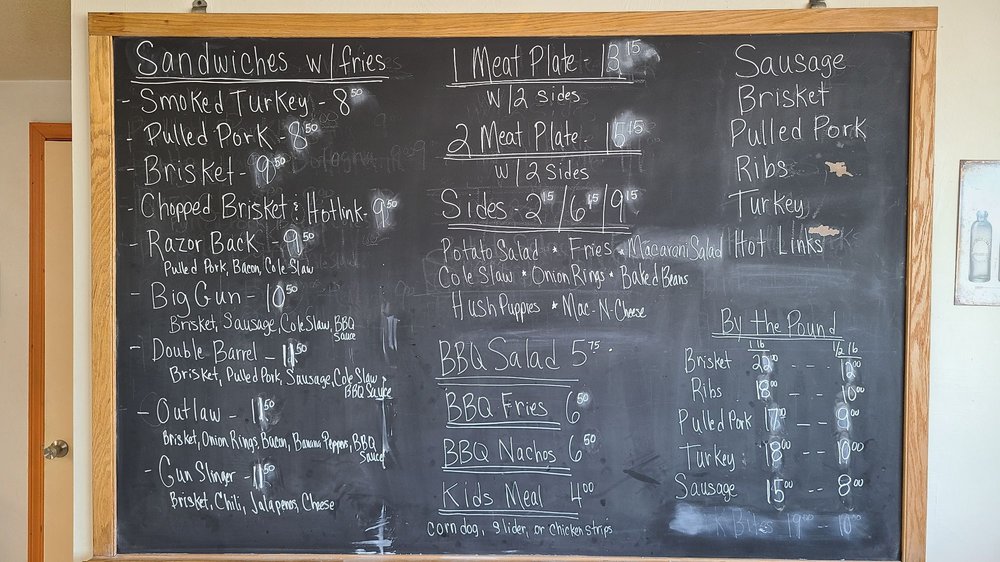 Sandwiches w/fries
- Smoked Turkey - 8⁵⁰
- Pulled Pork - 8⁵⁰
- Brisket - 9⁵⁰
- Chopped Brisket & Hotlink - 9⁵⁰
- Razor Back - 9⁵⁰
Pulled Pork, Bacon, Cole Slaw
- Big Gun - 10⁵⁰
Brisket, Sausage, Cole Slaw, BBQ
Sauce
- Double Barrel - 11⁵⁰
Brisket, Pulled Pork, Sausage, Cole Slaw
BBQ Sauce
- Outlaw - 11⁵⁰
Brisket, Onion Rings, Bacon, Banana Peppers, BBQ
Sauce
- Gun Slinger - 11⁵⁰
Brisket, Chili, Jalapenos, Cheese
1 Meat Plate - 13¹⁵
w/2 sides
2 Meat Plate - 15¹⁵
w/2 sides
Sides - 2¹⁵/6¹⁵/9¹⁵
Potato Salad * Fries * Macaroni Salad
Cole Slaw * Onion Rings * Baked Beans
Hush Puppies * Mac-N-Cheese
BBQ Salad 5⁷⁵
BBQ Fries 6⁵⁰
BBQ Nachos 6⁵⁰
Kids Meal 4⁰⁰
corn dog, slider, or chicken strips
Sausage
Brisket
Pulled Pork
Ribs
Turkey
Hot Links
By the Pound
1 lb 1/2 lb
Brisket 22⁰⁰ -- 12⁰⁰
Ribs 18⁰⁰ -- 10⁰⁰
Pulled Pork 17⁰⁰ -- 9⁰⁰
Turkey 18⁰⁰ -- 10⁰⁰
Sausage 15⁰⁰ -- 8⁰⁰